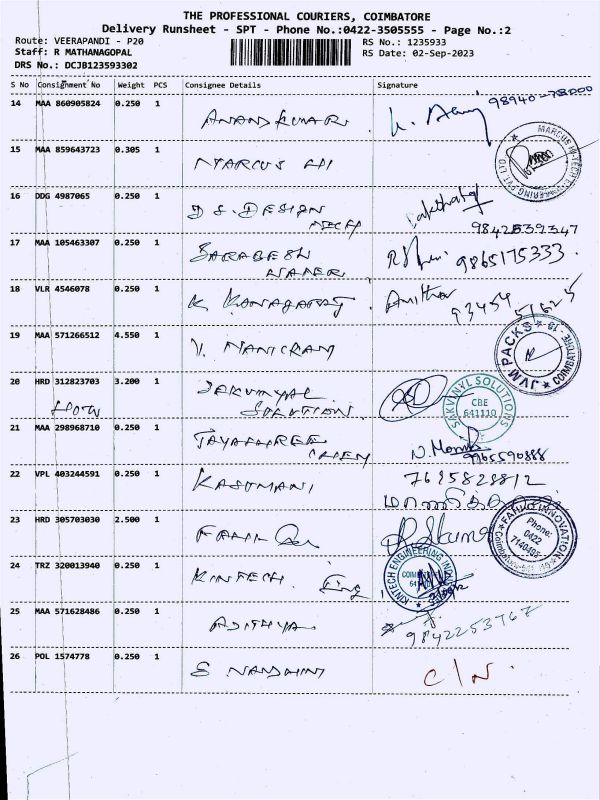 THE PROFESSIONAL COURIERS, COIMBATORE
Delivery Runsheet - SPT - Phone No.:0422-3505555 - Page No.:2
Route: VEERAPANDI - P20
Staff: R MATHANAGOPAL
DRS No.: DCJB123593302
RS No.: 1235933
RS Date: 02-Sep-2023
S No Consignment No Weight PCS Consignee Details Signature
14 MAA 860905824 0.250 1 ANANDKUMAR 98940-78000
15 MAA 859643723 0.305 1 MARCUS HI MARCUS HI-TECH ENGINEERING PVT. LTD
16 DDG 4987065 0.250 1 D S. DESIGN
TECH 9842539347
17 MAA 105463307 0.250 1 9865175333.
18 VLR 4546078 0.250 1 K KANAGARAJ Anitha 93454
51625
19 MAA 571266512 4.550 1 V. MANICKAM JVM PACKS COIMBATORE - 19
20 HRD 312823703 3.200 1 SAKVINYAL
SOLUTION SAKVINYL SOLUTIONS CBE 641110
21 MAA 298968710 0.250 1 JAYASHREE
CHEM 9965590888
22 VPL 403244591 0.250 1 KASUMANI 7695828812
23 HRD 305703030 2.500 1 INNOVATION Phone: 0422
24 TRZ 320013940 0.250 1 KINTECH Eng KINTECH ENGINEERING
25 MAA 571628486 0.250 1 ADITHYA 9842253767
26 POL 1574778 0.250 1 S NANDHINI C/N.